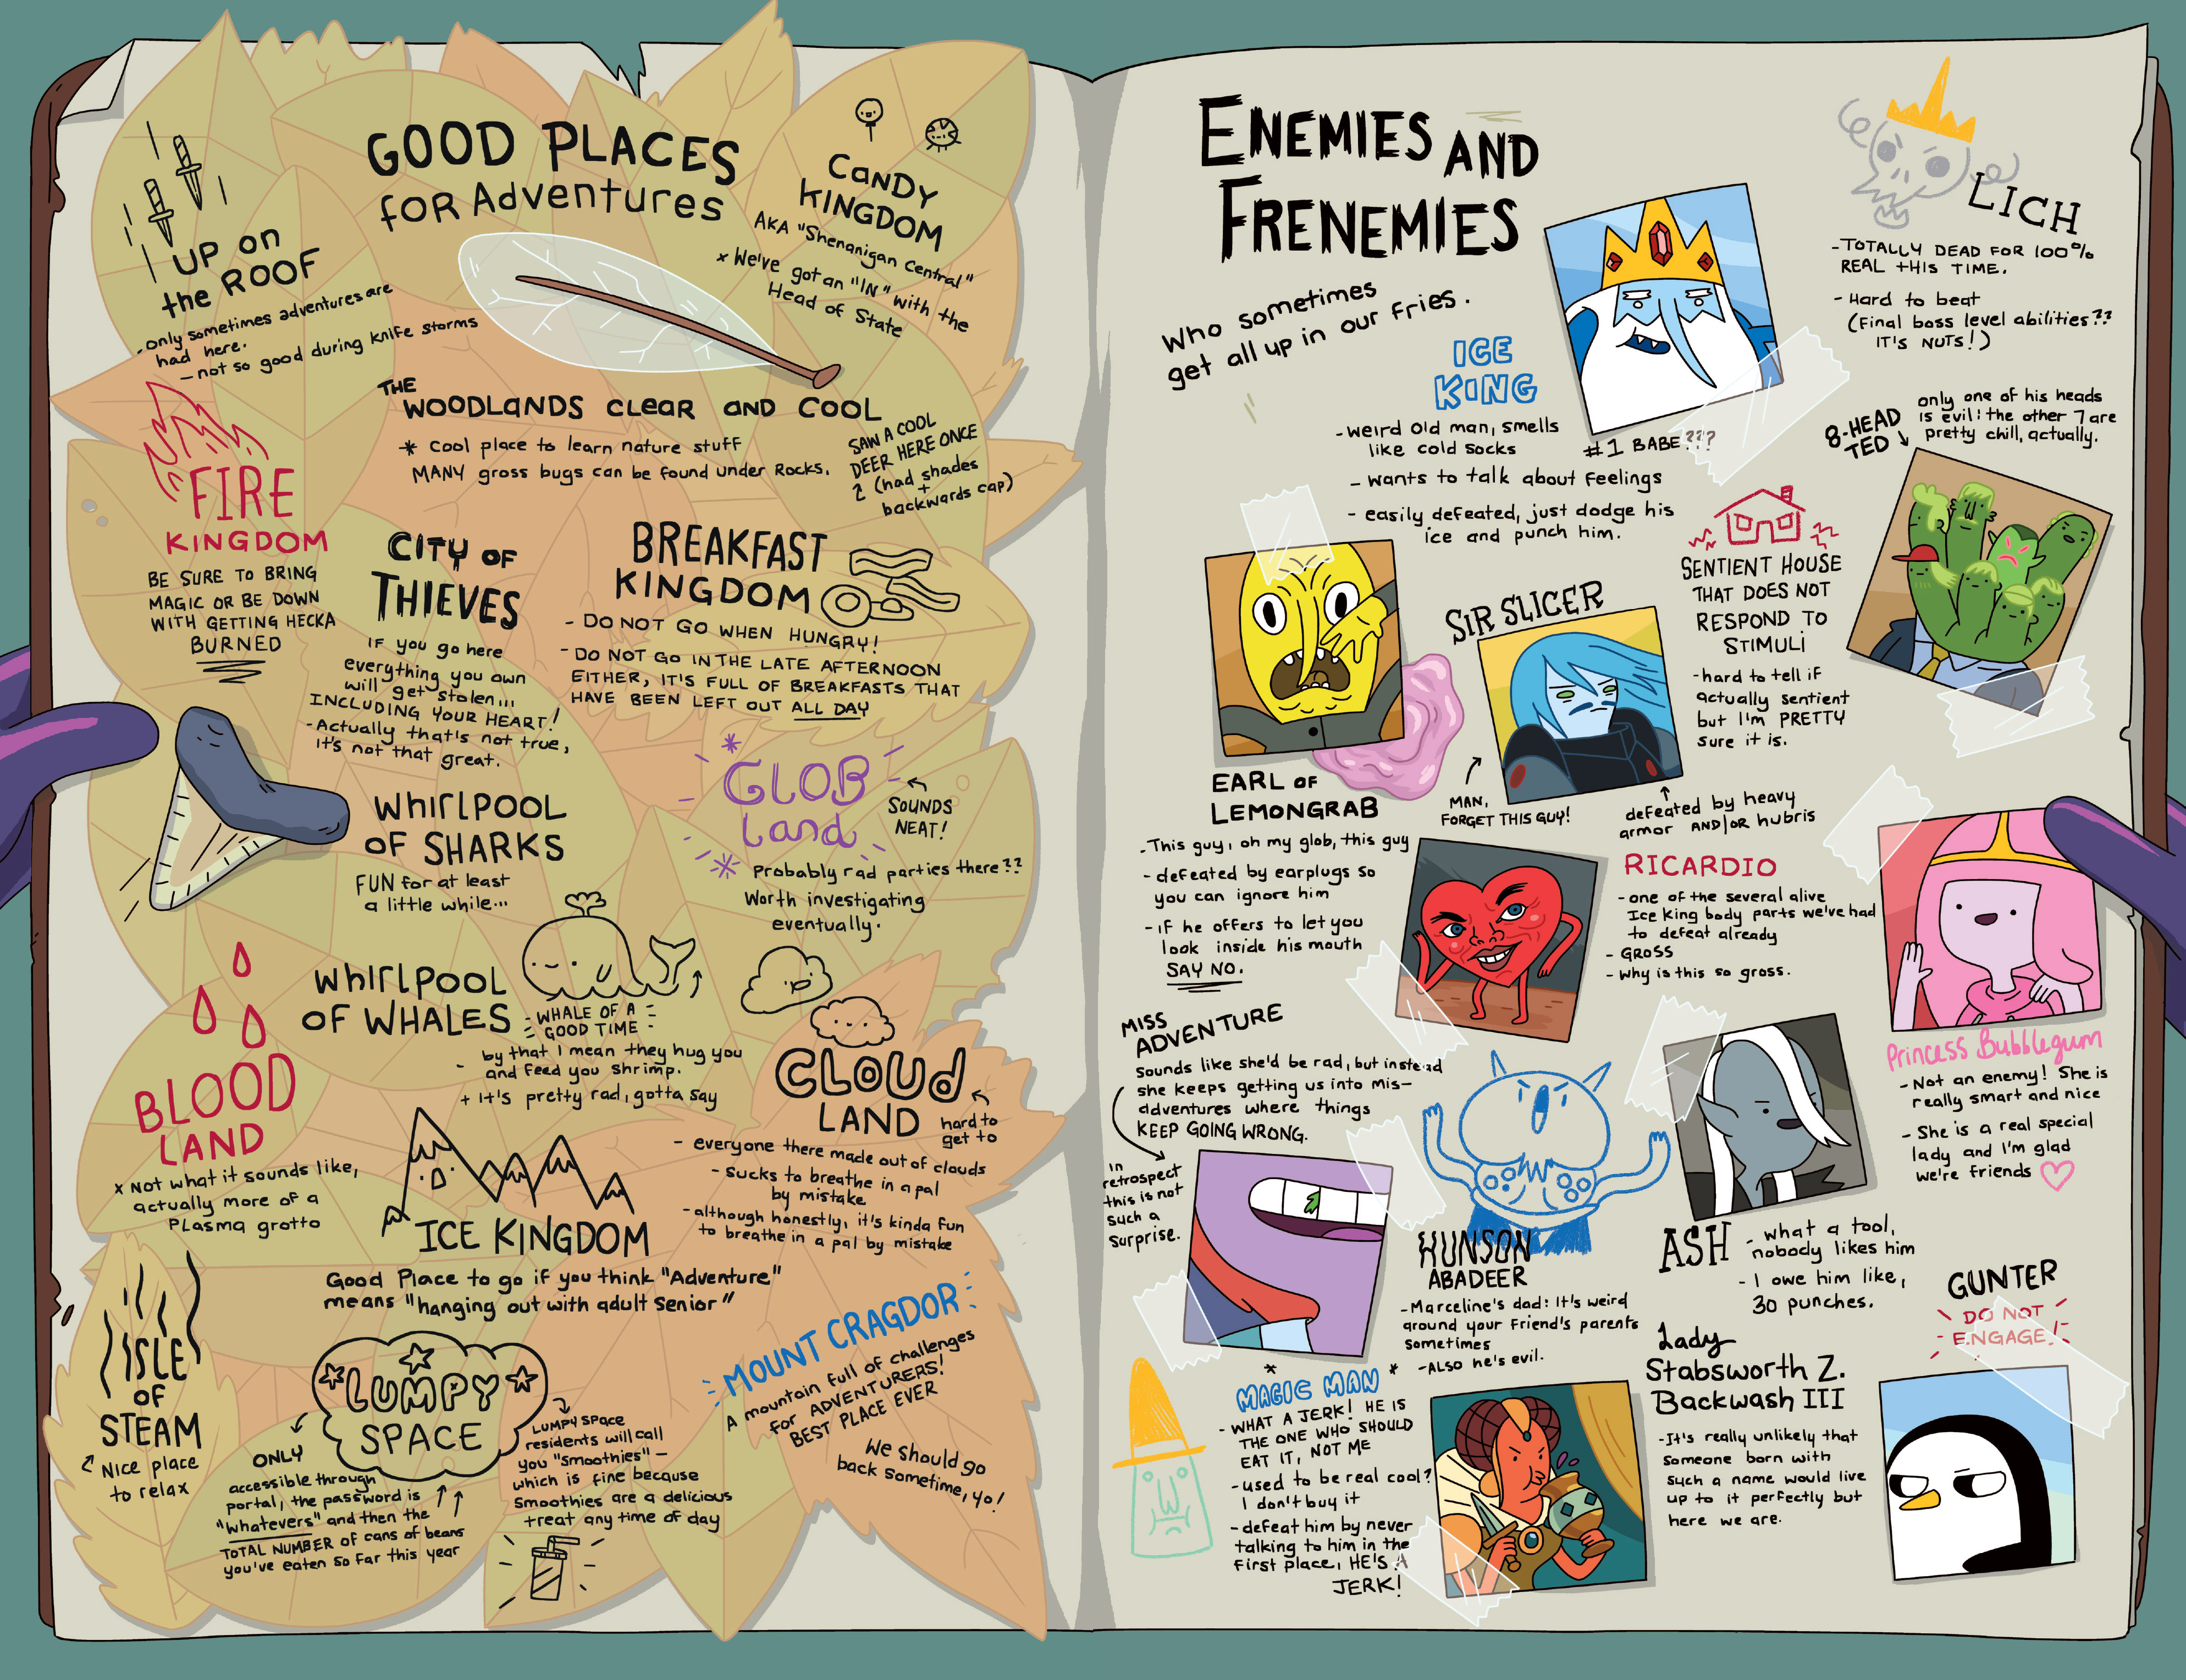 GOOD PLACES
for Adventures
UP on
the ROOF
- only sometimes adventures are
had here.
- not so good during knife storms
CANDY
KINGDOM
AKA "Shenanigan Central"
x We've got an "IN" with the
Head of State
THE
WOODLANDS CLEAR AND COOL
* Cool place to learn nature stuff
MANY gross bugs can be found under Rocks.
SAW A COOL
DEER HERE ONCE
? (had shades
+
backwards cap)
FIRE
KINGDOM
BE SURE TO BRING
MAGIC OR BE DOWN
WITH GETTING HECKA
BURNED
CITY OF
THIEVES
IF you go here
everything you own
will get stolen...
INCLUDING YOUR HEART!
- Actually that's not true,
it's not that great.
BREAKFAST
KINGDOM
- DO NOT GO WHEN HUNGRY!
- DO NOT GO IN THE LATE AFTERNOON
EITHER, IT'S FULL OF BREAKFASTS THAT
HAVE BEEN LEFT OUT ALL DAY
WHIRLPOOL
OF SHARKS
FUN for at least
a little while...
GLOB
Land
SOUNDS
NEAT!
Probably rad parties there??
Worth investigating
eventually.
WHIRLPOOL
OF WHALES
- WHALE OF A -
GOOD TIME
- by that I mean they hug you
and feed you shrimp.
+ It's pretty rad, gotta say
BLOOD
LAND
x Not what it sounds like,
actually more of a
PLASMA grotto
CLOUD
LAND
hard to
get to
- everyone there made out of clouds
- sucks to breathe in a pal
by mistake
- although honestly, it's kinda fun
to breathe in a pal by mistake
ICE KINGDOM
Good Place to go if you think "Adventure"
means "hanging out with adult senior"
ISLE
OF
STEAM
Nice place
to relax
LUMPY
SPACE
ONLY
accessible through
portal, the password is
"whatevers" and then the
TOTAL NUMBER of cans of beans
you've eaten so far this year
LUMPY SPACE
residents will call
you "Smoothies" —
which is fine because
smoothies are a delicious
treat any time of day
MOUNT CRAGDOR
A mountain full of challenges
for ADVENTURERS!
BEST PLACE EVER
We should go
back sometime, yo!
ENEMIES AND
FRENEMIES
Who sometimes
get all up in our fries.
ICE
KING
- weird old man, smells
like cold socks
- wants to talk about feelings
- easily defeated, just dodge his
ice and punch him.
#1 BABE???
LICH
- TOTALLY DEAD FOR 100%
REAL THIS TIME.
- Hard to beat
(Final boss level abilities??
IT'S NUTS!)
8-HEAD
TED
only one of his heads
is evil: the other 7 are
pretty chill, actually.
SENTIENT HOUSE
THAT DOES NOT
RESPOND TO
STIMULI
- hard to tell if
actually sentient
but I'm PRETTY
sure it is.
SIR SLICER
MAN,
FORGET THIS GUY!
defeated by heavy
armor AND/OR hubris
EARL OF
LEMONGRAB
- This guy, oh my glob, this guy
- defeated by earplugs so
you can ignore him
- if he offers to let you
look inside his mouth
SAY NO.
RICARDIO
- one of the several alive
Ice King body parts we've had
to defeat already
- GROSS
- why is this so gross.
Princess Bubblegum
- Not an enemy! She is
really smart and nice
- She is a real special
lady and I'm glad
we're friends
MISS
ADVENTURE
Sounds like she'd be rad, but instead
she keeps getting us into mis-
adventures where things
KEEP GOING WRONG.
in
retrospect
this is not
such a
surprise.
HUNSON
ABADEER
- Marceline's dad: It's weird
around your friend's parents
sometimes
- ALSO he's evil.
ASH
- what a tool,
nobody likes him
- I owe him like,
30 punches.
GUNTER
DO NOT
ENGAGE!
MAGIC MAN
- WHAT A JERK! HE IS
THE ONE WHO SHOULD
EAT IT, NOT ME
- used to be real cool?
I don't buy it
- defeat him by never
talking to him in the
first place, HE'S A
JERK!
Lady
Stabsworth Z.
Backwash III
- It's really unlikely that
someone born with
such a name would live
up to it perfectly but
here we are.